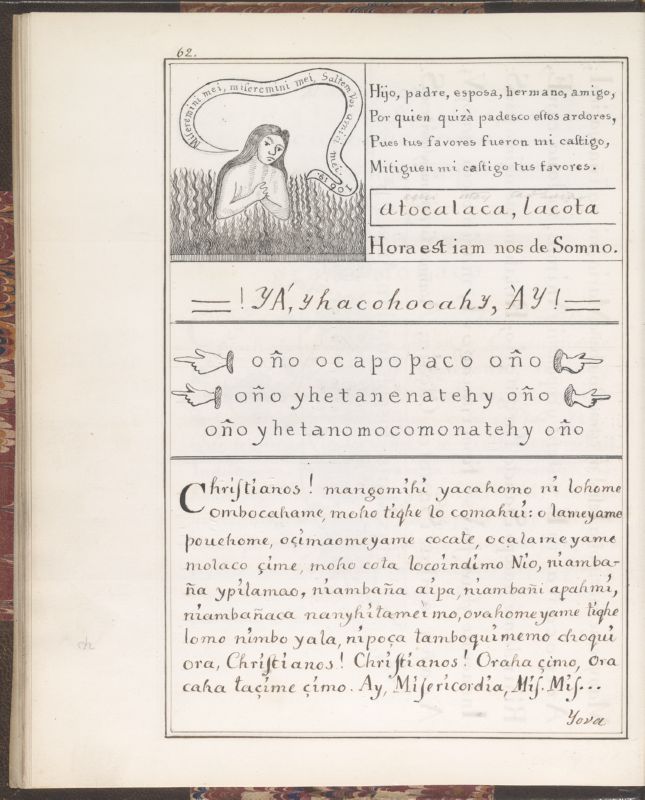 62.
Miseremini mei, miseremini mei, Saltem vos amici mei.
Hijo, padre, esposa, hermano, amigo,
Por quien quizà padesco eſtos ardores,
Pues tus favores fueron mi caſtigo,
Mitiguen mi caſtigo tus favores.
atocalaca, lacota
Hora est iam nos de Somno.
! YÁ, yhacohocahy, ÀY !
oño ocapopaco oño
oño yhetanenatehy oño
oño yhetanomocomonatehy oño
Chriſtianos! mangomihi yacahomo ni lohome
ombocahame, moho tiqhe lo comahui: o lameyame
pouehome, oçimaomeyame cocate, ocalameyame
molaco çime, moho cota locoindimo Nio, niamba-
ña ypilamao, niambaña aipa, niambañi apahmi,
niambañaca nanyhitameimo, ovahomeyame tiqhe
lomo nimbo yala, nipoça tamboquimemo choqui
ora, Chriſtianos! Chriſtianos! Oraha çimo, ora
caha taçime çimo. Ay, Miſericordia, Miſ. Miſ...
Yova